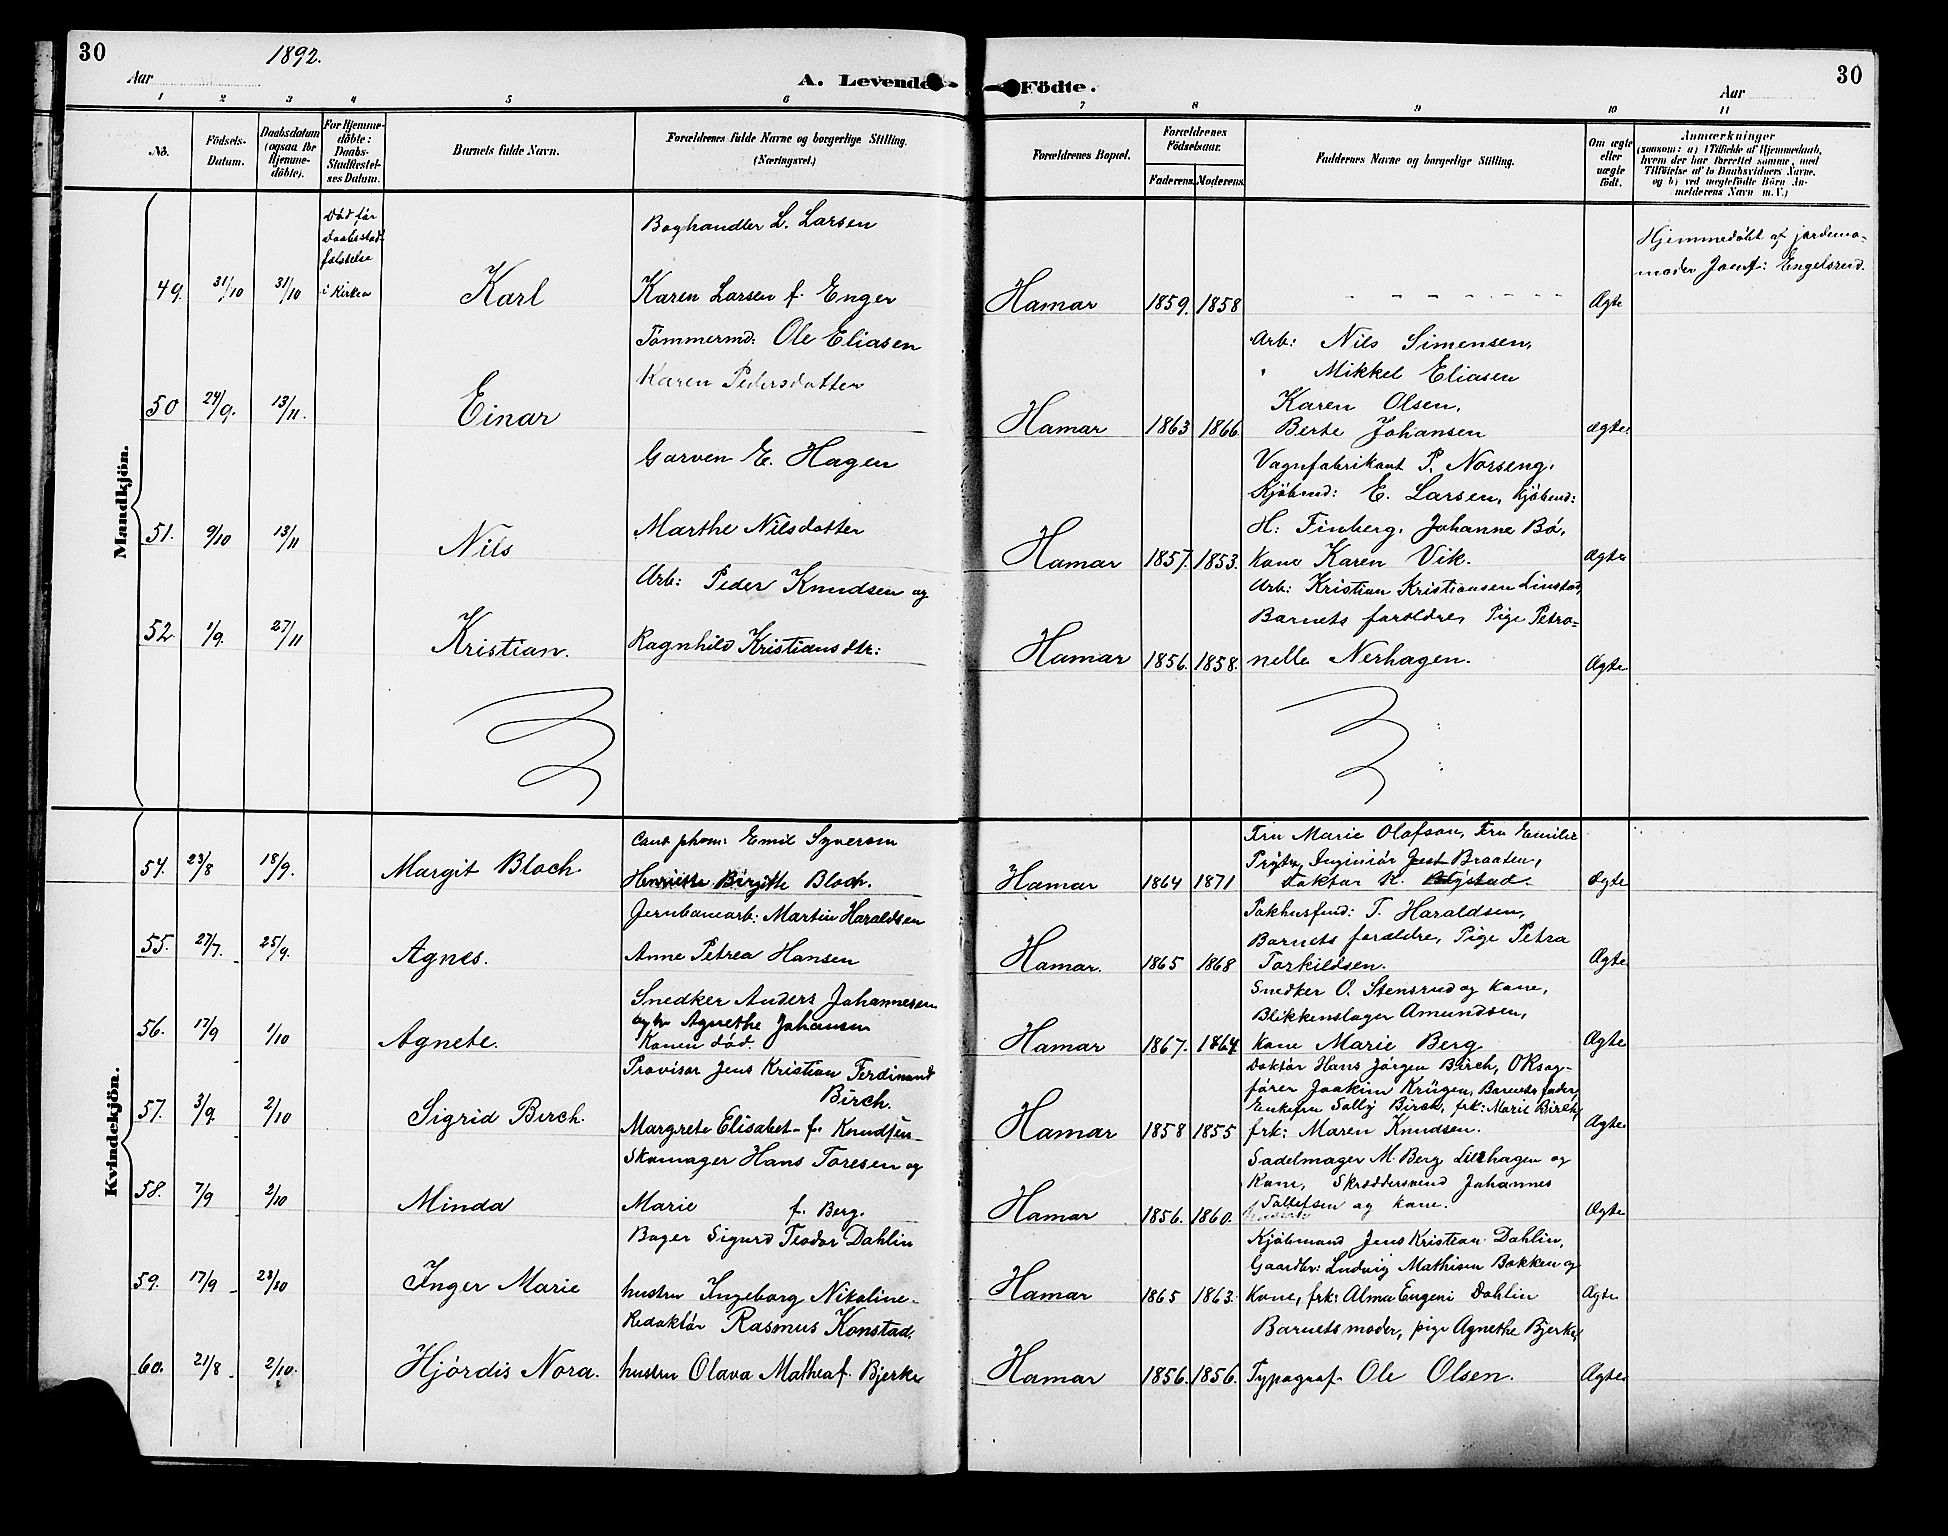 30
Aar 1892.
A. Levende
Födte.
Aar
30
1 2 3 4 5 6 7 8 9 10 11
No.
Födsels-Datum.
Daabsdatum (ogsaa for Hjemme-döbte).
For Hjemme-döbte: Daabs-Stadfæstel-ses Datum.
Barnets fulde Navn.
Forældrenes fulde Navne og borgerlige Stilling. (Næringsvei.)
Forældrenes Bopæl.
Forældrenes Födselsaar.
Faderens. Moderens.
Faddernes Navne og borgerlige Stilling.
Om ægte eller uægte födt.
Anmærkninger
(saasom: a) i Tilfælde af Hjemmedaab,
hvem der har forrettet samme, med
Tilföielse af to Daabsvidners Navne,
og b) ved uægtefödte Börn An-
melderens Navn m. V.)
Mandkjön.
Död før
Daabsstad-
fæstelse
i Kirken
49. 31/10 31/10 Karl
Boghandler L. Larsen
Karen Larsen f. Enger
Hamar 1859. 1858 Ægte
Hjemmedøbt af jordemo-
moder Engelsrud.
50 24/9. 13/11. Einar
Tømmermd: Ole Eliasen
Karen Pedersdatter
Hamar 1863 1866.
Arb: Nils Simensen,
" Mikkel Eliasen
Karen Olsen,
Berte Johansen
ægte
51. 9/10 13/11 Nils
Garver E. Hagen
Marthe Nilsdatter
Hamar 1857. 1853.
Vagnfabrikant P. Norseng,
Kjöbmd: E. Larsen, Kjöbmd:
H: Finberg, Johanne Bø,
kone Karen Vik.
Ægte
52. 1/9. 27/11 Kristian.
Arb: Peder Knudsen og
Ragnhild Kristiansdtr:
Hamar 1856. 1858.
Arb: Kristian Kristiansen Linstad,
Barnets forældre, Pige Petro-
nelle Nerhagen.
Ægte
Kvindekjön.
54. 23/8 18/9. Margit Bloch.
Cand pharm: Emil Syversen
Henriette Birgitte Bloch.
Hamar 1864 1871
Fru Marie Olafson, Fru Emilie
Prytz, Ingeniør Just Braaten,
Doktor K.
Ægte
55. 27/7. 25/9. Agnes.
Jernbanearb: Martin Haraldsen
Anne Petrea Hansen
Hamar. 1865 1868
Pakhusfmd: T. Haraldsen,
Barnets forældre, Pige Petra
Torkildsen.
Ægte
56. 17/9 1/10 Agnete.
Snedker Anders Johannesen
og hr Agnethe Johansen
Konen død.
Hamar 1867. 1864.
Snedker O. Stensrud og kone,
Blikkenslager Amundsen,
kone Marie Berg
Ægte
57. 3/9. 2/10 Sigrid Birch.
Provisor Jens Kristian Ferdinand
Birch.
Margrete Elisabet f. Knudsen
Hamar 1858 1855
Doktor Hans Jørgen Birch, O Rsag-
fører Joakim Krügen, Barnets fader,
Enkefru Sally Birch, frk: Marie Birch,
frk: Maren Knudsen.
Ægte
58. 7/9 2/10 Minda
Skomager Hans Toresen og
Marie f. Berg.
Hamar 1856. 1860.
Sadelmager M. Berg Lillehagen og
Kone, Skræddersvend Johannes
Tollefsen og kone.
Ægte
59. 17/9 23/10 Inger Marie
Bager Sigurd Teodor Dahlin
hustru Ingeborg Nikoline
Hamar 1865 1863.
Kjöbmand Jens Kristian Dahlin,
Gaardbr: Ludvig Mathisen Bakken og
Kone, frk: Alma Eugeni Dahlin
Ægte
60. 21/8 2/10. Hjördis Nora.
Redaktör Rasmus Konstad,
hustru Olava Mathea f. Bjerke
Hamar 1856. 1856.
Barnets moder, pige Agnethe Bjerke,
Typograf Ole Olsen.
Ægte